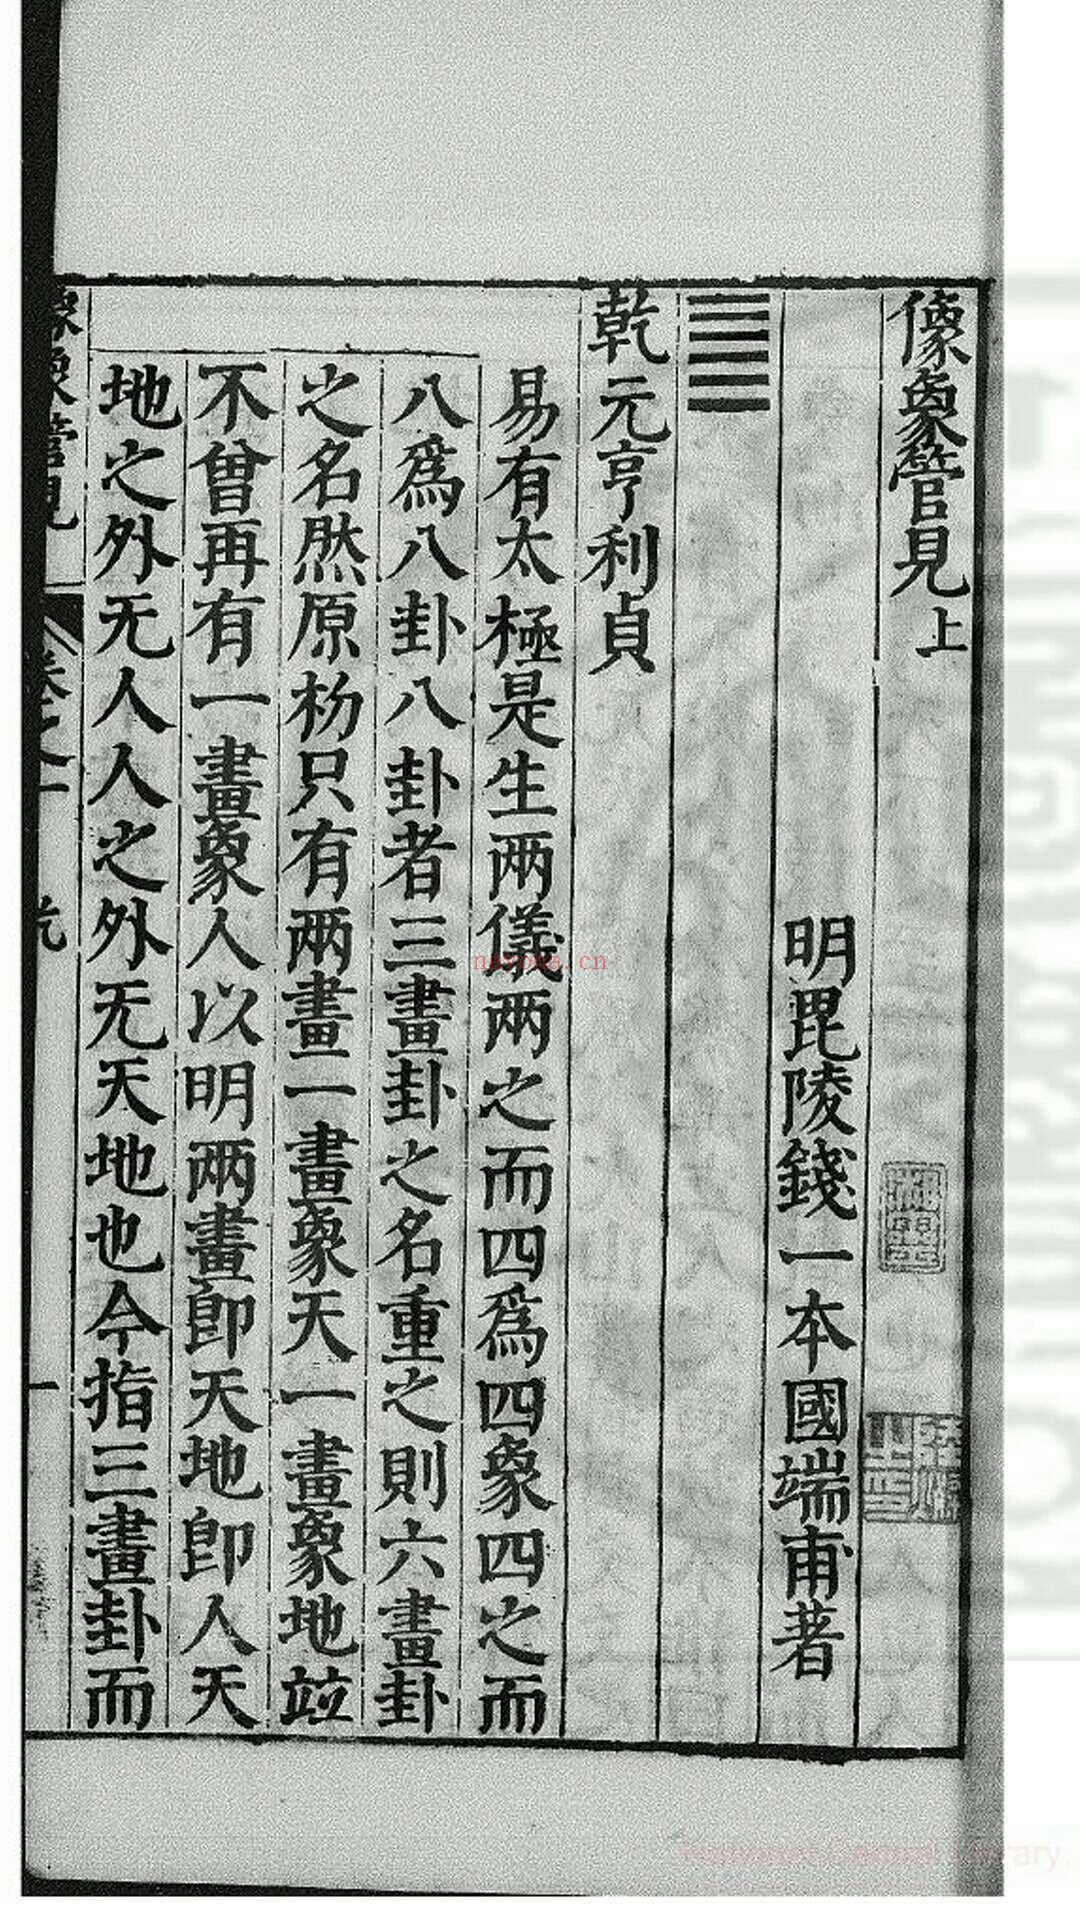 像象管見上
明毘陵錢一本國端甫著
乾元亨利貞
易有太極是生兩儀兩之而四爲四象四之而
八爲八卦八卦者三畫卦之名重之則六畫卦
之名然原初只有兩畫一畫象天一畫象地竝
不曾再有一畫象人以明兩畫卽天地卽人天
地之外无人人之外无天地也今指三畫卦而
像象管見
卷之一
元
一
nayona.cn